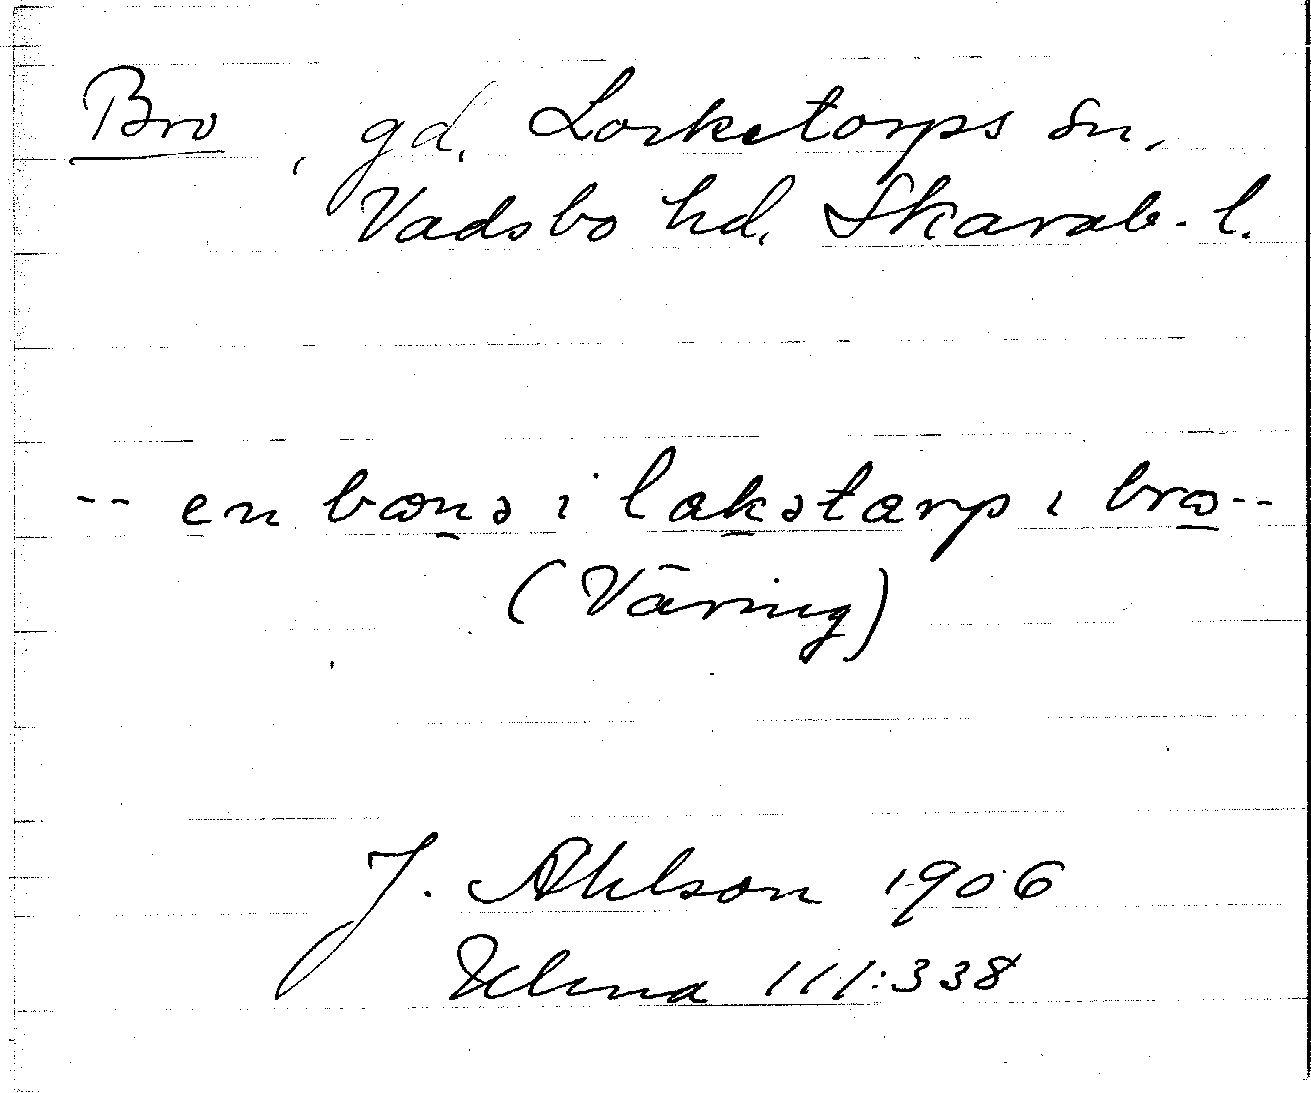 Bro, gd, Locketorps sn,
Vadsbo hd, Skarab. l.
-- en bonə i lokətorp i bro --
(Väring)
J. Ahlson 1906
Ulma 111:338